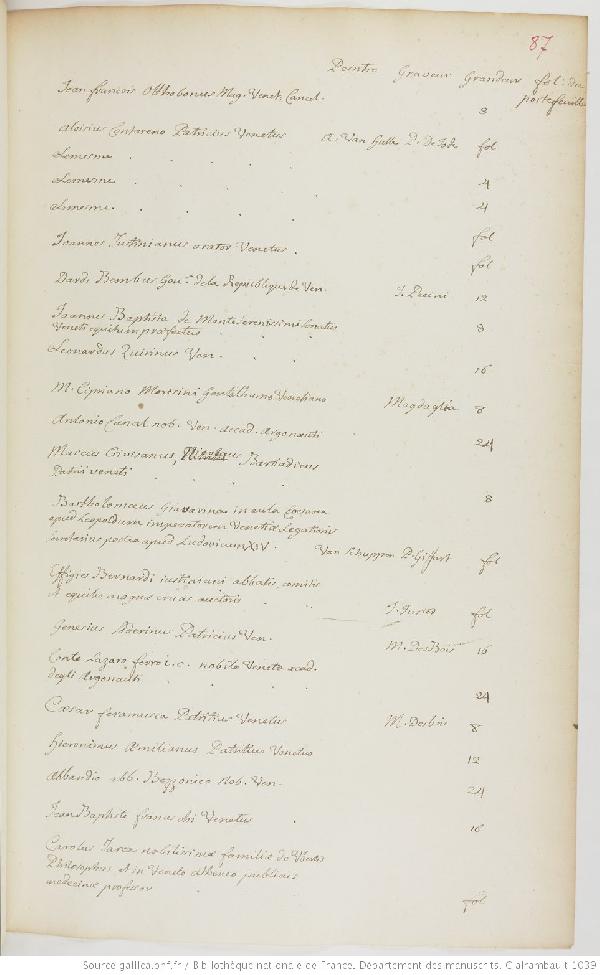 87
Peintre Graveur Grandeur fol. du
portefeuille
Jean françois Otthobonus Mag. Venet. Cancel. 8
Aloisius Contareno Patricius Venetus A. Van Hulle P. De Jode fol
Lemesme 4
Lemesme 4
Lemesme fol
Joannes Justinianus orator Venetus. fol
Dardi Bembus Gou.r de la Republique de Ven. 12
Joannes Baptista de Monte serenissimi senatus
Veneti equitum præfectus 8
Leonardus Quirinus Ven. 16
M. Cipriano Moresini Gentilhuomo Venetiano 8
Antonio Canal nob. Ven. accad. Argonauti 24
Marcus Barbadicus
veneti 8
Bartholomæus in aula Cæsarea
apud Leopoldum imperatorem Venetæ Legationis
postea apud Ludovicum XIV. Van Schuppen P. Giffart fol
Effigies Bernardi iustiniani abbatis, comitis
et equitis magnæ crucis fol
Venetus Patricius Ven. M. DesBois 16
Conte Lazaro ferro i.c. nobile Veneto acad.
degli Argonauti 24
Cæsar Patritius Venetus M. Desbois 8
hieronimus Æmilianus Patritius Venetus 12
abb. Bezzonico Nob. Ven. 24
Jean Baptiste Venetus 16
Carolus nobilissimæ familiæ de
Philosophus et in Veneto Athenæo publicus
medecinæ professor fol
Source gallica.bnf.fr / Bibliothèque nationale de France. Département des manuscrits. Clairambault 1039